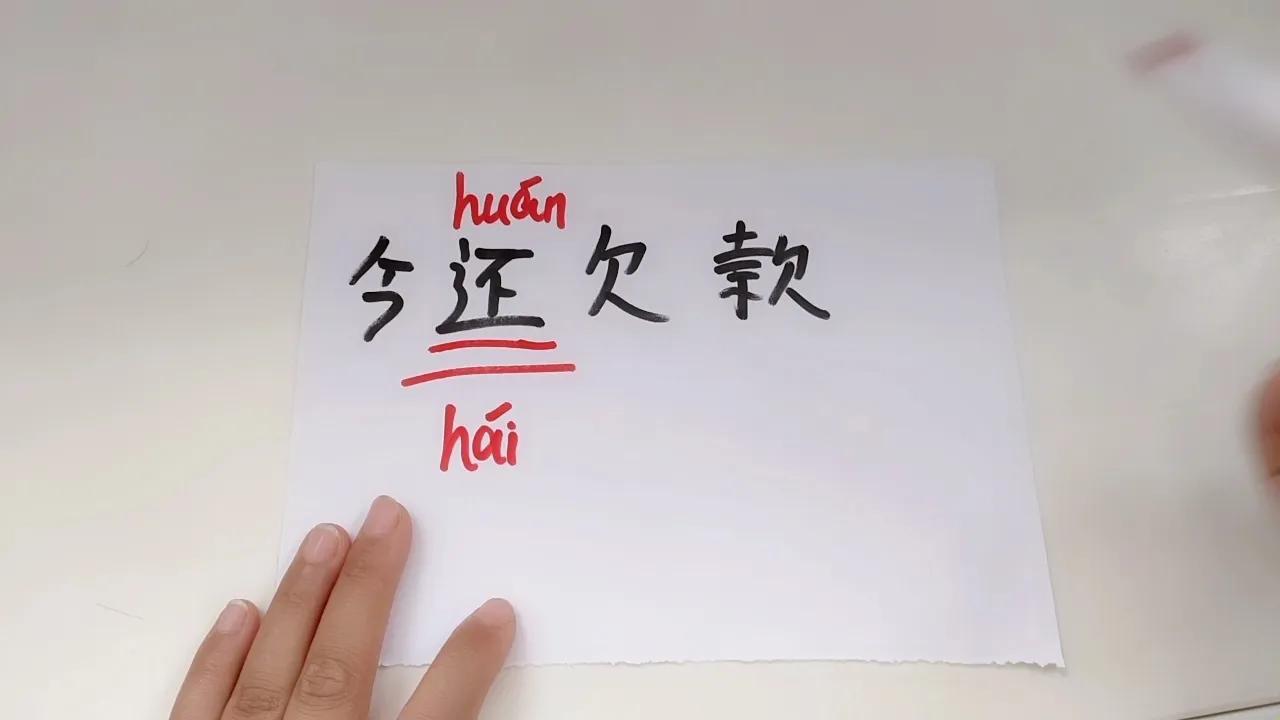 huán
今还欠款
hái